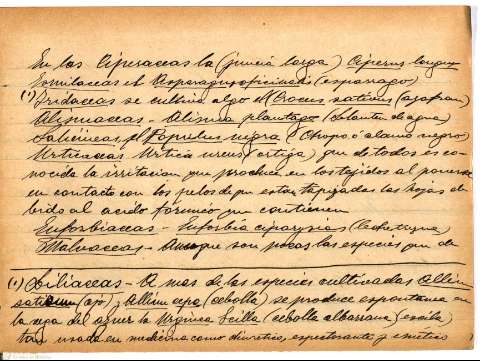 En las Ciperaceas la (juncia larga) Ciperus longus
Esmilaceas el Asparagus oficinalis (esparrago)
(1) Iridaceas se cultiva algo el Crocus sativus (azafran)
Alismaceas - Alisma plantago (Llanten de agua)
Salicineas el Populus nigra Chopo ó alamo negro)
Urticaceas Urtica urens (ortiga) que de todos es co
nocida la irritacion que produce en los tejidos al ponerse
en contacto con los pelos de que estan tapizadas las hojas de
bido al acido fórmico que contienen
Euforbiaceas - Euforbia ciparysias (lechetrezna
Malvaceas - Aunque son pocas las especies que de
(1) Liliaceas - A mas de las especies cultivadas Allium
sativum (ajo) y Allium cepa (cebolla) se produce espontanea en
la vega del aznar la Urginea Scilla (cebolla albarrana) (esala)
tan usada en medicina como diuretico, espectorante y emetico